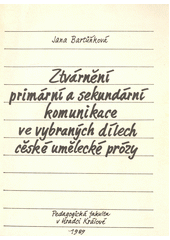 Jana Bartůňková
Ztvárnění
primární a sekundární
komunikace
ve vybraných dílech
české umělecké prózy
Pedagogická fakulta
v Hradci Králové
1989